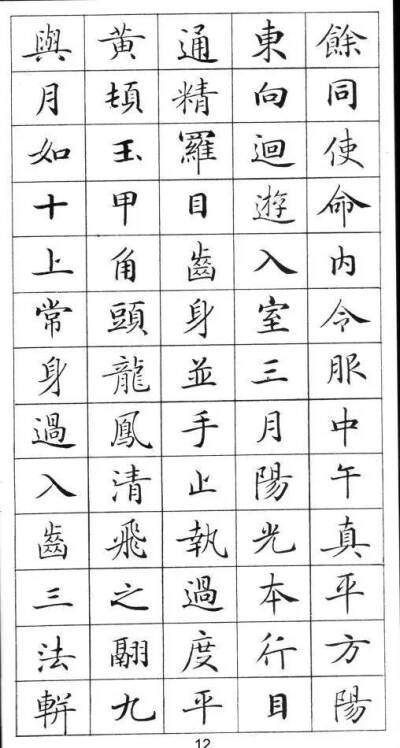 餘同使命内令服中午真平方陽
東向迴遊入室三月陽光本行目
通精羅目齒身並手止執過度平
黃頓玉甲角頭龍鳳清飛之翮九
與月如十上常身過入齒三法輧
12